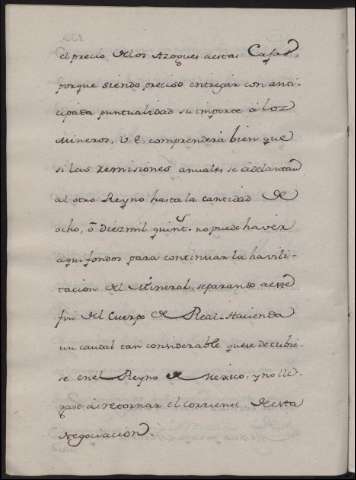 el precio de los Azogues a estas Casas,
porque siendo preciso entregar con anti-
cipada puntualidad su importe á los
Mineros, V. E. comprenderá bien que
si las remisiones anuales se adelantan
al otro Reyno hasta la cantidad de
ocho, ó diez mil quints. no puede haver
aqui fondos para continuar la havili-
tacion del Mineral, separando a este
fin del Cuerpo de Real Hacienda
un caudal tan considerable que se
se en el Reyno de Mexico, y no lle-
gase á retornar el corriente de esta
Negociacion.